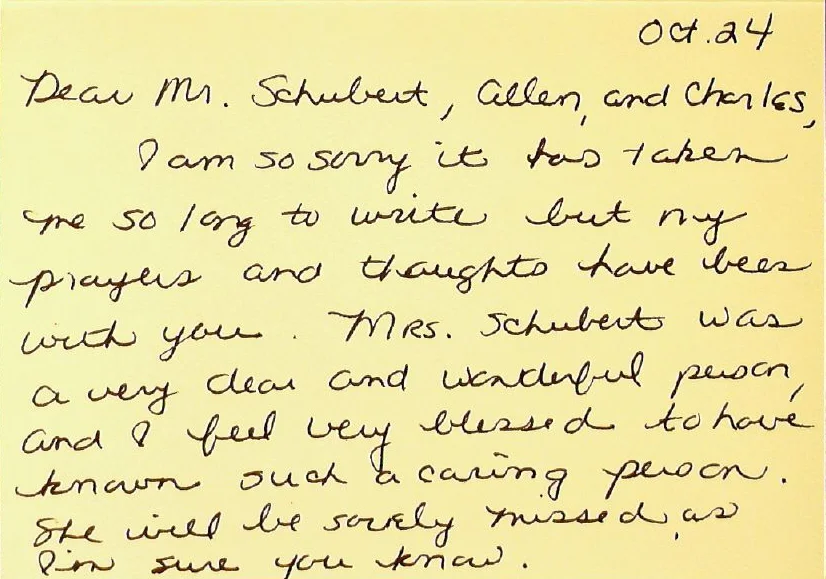 Oct. 24
Dear Mr. Schubert, Allen, and Charles,
I am so sorry it has taken
me so long to write but my
prayers and thoughts have been
with you. Mrs. Schubert was
a very dear and wonderful person,
and I feel very blessed to have
known such a caring person.
She will be sorely missed, as
I'm sure you know.